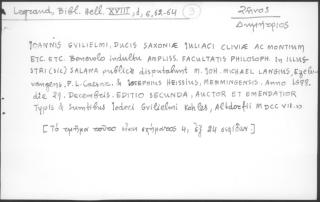 Legrand, Bibl. Hell. XVIII, 1, σ, 62-64 3 Ζῆνος
Δημήτριος
IOANNIS GVILIELMI, DUCIS SAXONIÆ IULIACI CLIVIÆ AC MONTIUM
ETC. ETC. Benevolo indultu AMPLISS. FACULTATIS PHILOSOPH. in ILLUS-
TRI (SIC) SALANA publice disputabunt M. JOH. MICHAEL LANGIUS,
P.L. Caesar. & IOSEPHUS HEISSIUS, MEMMINGENSIS. Anno 1698.
die 29. Decembris. EDITIO SECUNDA, AUCTOR ET EMENDATIOR
Typis & sumtibus Iodoci Gvilielmi Kohles, Altdorfii MDCCVII. in
[Τὸ τμῆμα τοῦτο εἶναι 4, ἐξ 24 σελίδων]